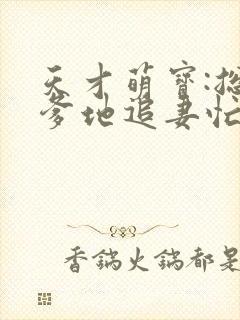 天才萌寶:總
爹地追妻忙
香鍋火鍋都是